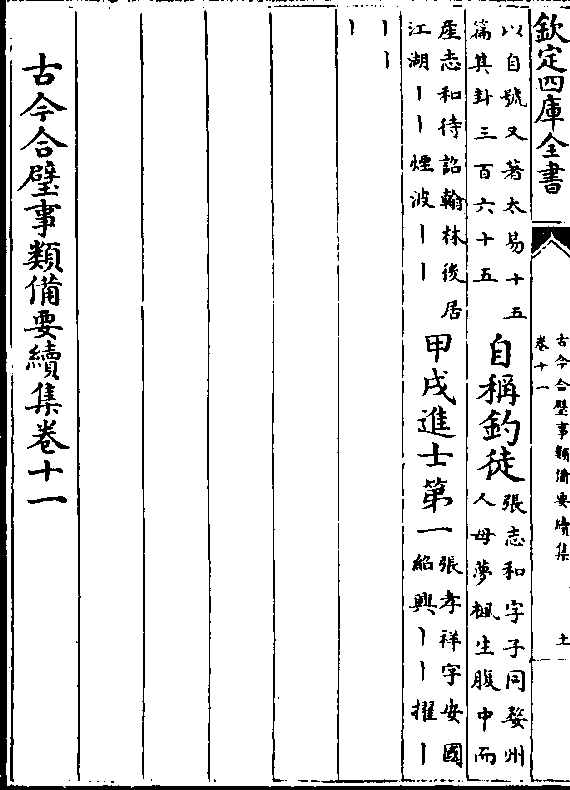 欽定四庫全書
古今合璧事類備要續集
卷十一
土
以自號又著太易十五
篇其卦三百六十五
自稱釣徒
張志和字子同婺州
人母夢楓生腹中而
產志和待詔翰林後居
江湖丨丨煙波丨丨
甲戌進士第一
張孝祥字安國
紹興丨丨擢丨
丨丨
丨
古今合璧事類備要續集卷十一